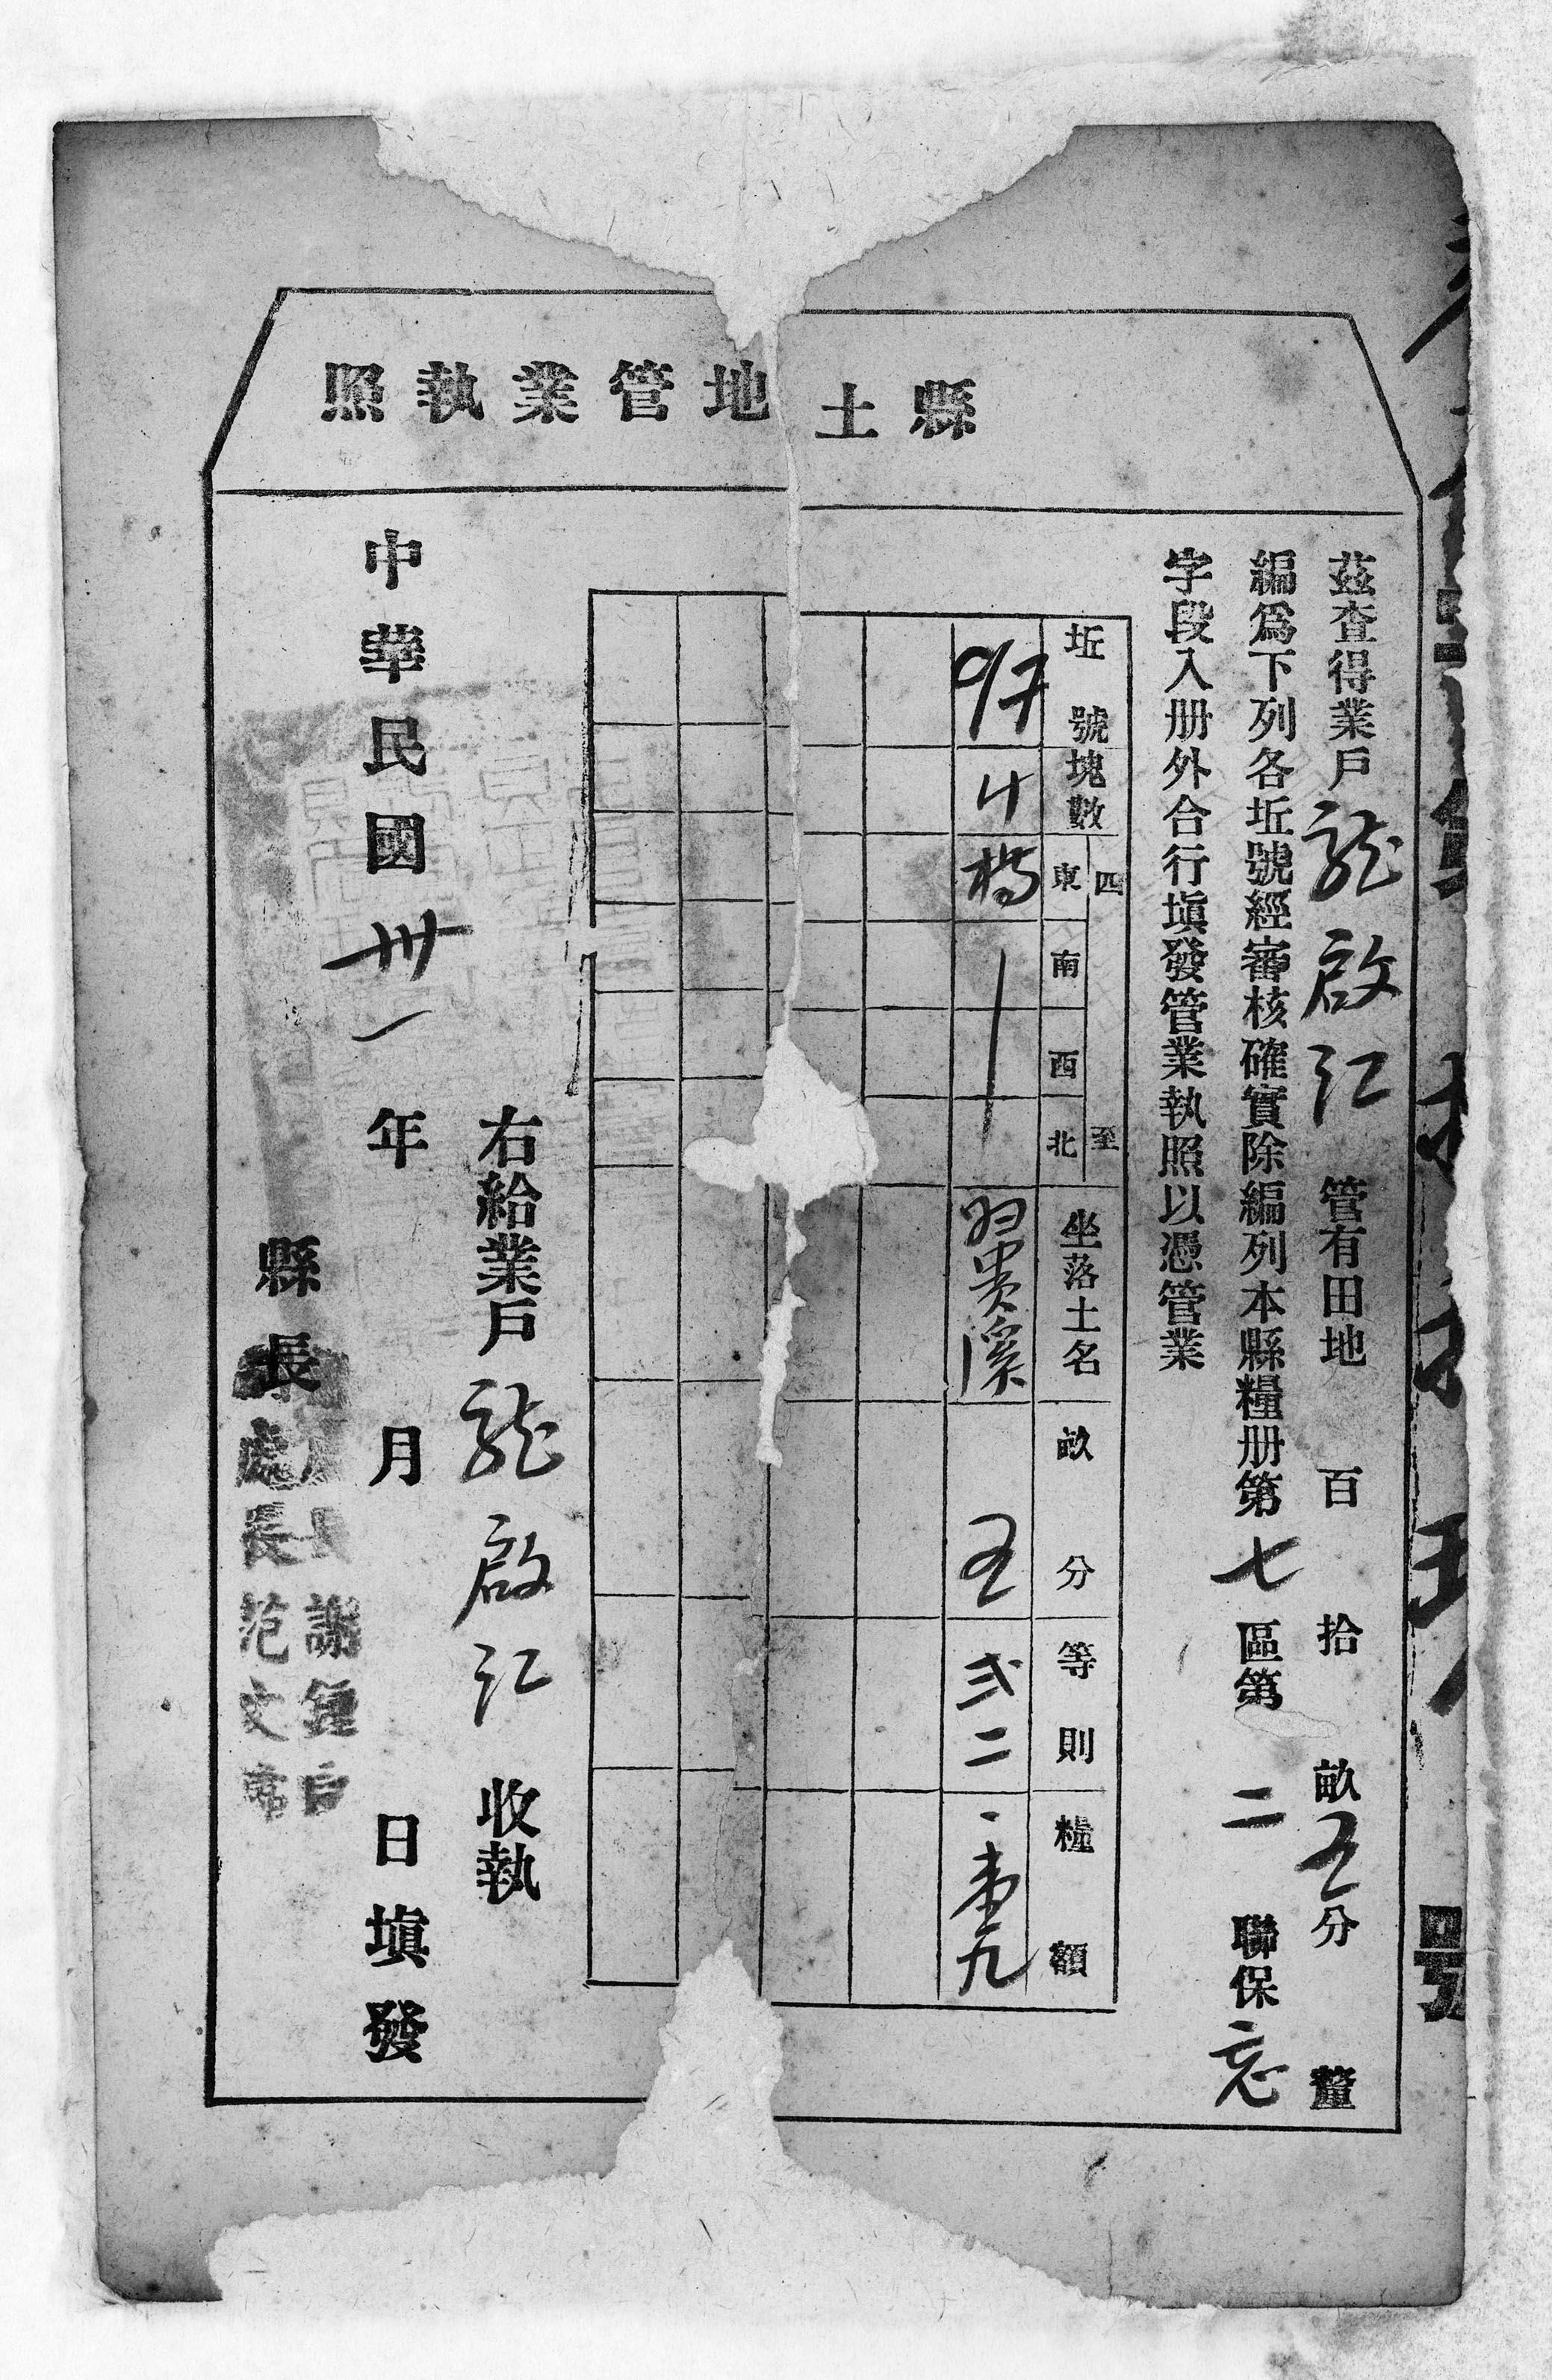 縣土地管業執照
茲查得業戶龍啟江管有田地百拾畝五分釐
編爲下列各坵號經審核確實除編列本縣糧册第七區第二聯保
字段入册外合行塡發管業執照以憑管業
坵號 塊數 四至 東 南 西 北 坐落土名 畝分 等則 糧額
溪 五 弍二 壹九
右給業戶龍啟江收執
中華民國卅一年月日塡發
縣長
長謝
處長范文
號